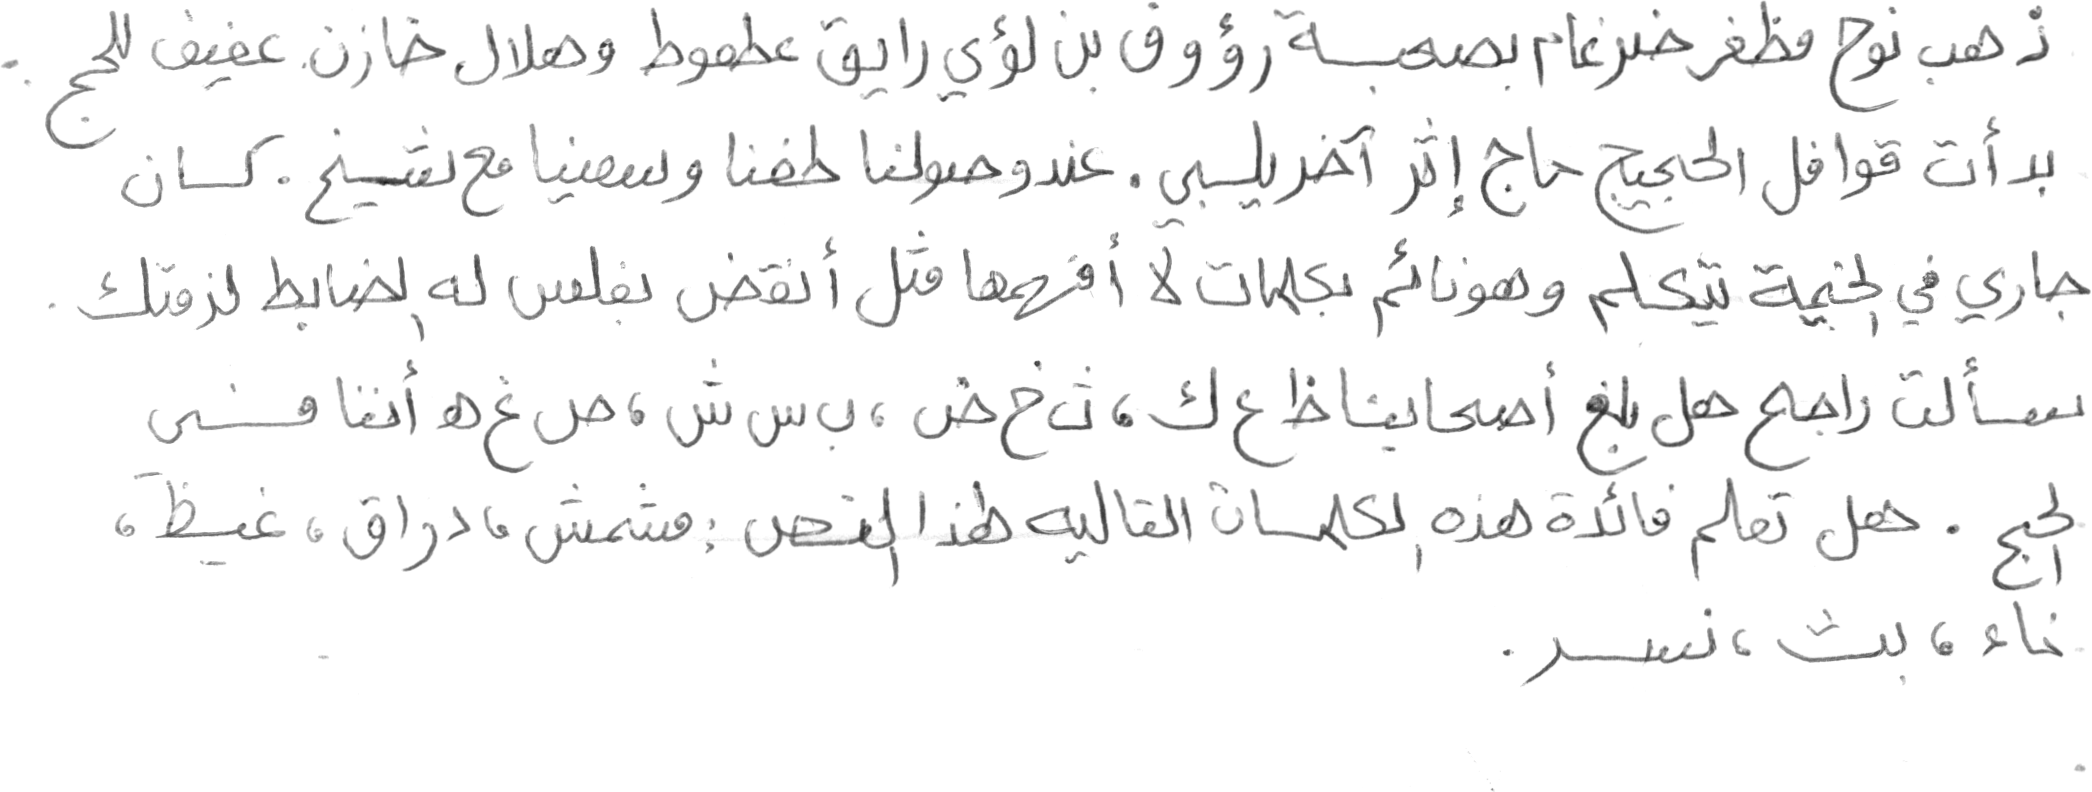 ذهب نوح مظفر ضرغام بصحبة رؤوف بن لؤي رايق عطعوط وهلال خازن عفيف للحج .
بدأت قوافل الحجيج حاج إثر آخر يلبي . عند وصولنا طفنا وسعينا مع شيخ . كان
جاري في الخيمة يتكلم وهو نائم بكلمات لا أفهمها مثل أنقض بفلس له الضابط لزمتك .
سألت راجح هل بلغ أصحابنا ظ ع ك ، ث خ ض ، ب س ش ، ص غ ه أننا منى
الحج . هل تعلم فائدة هذه الكلمات التاليه لهذا النص : مشمش ، دراق ، غيظ ،
ناء ، بث ، نسر .